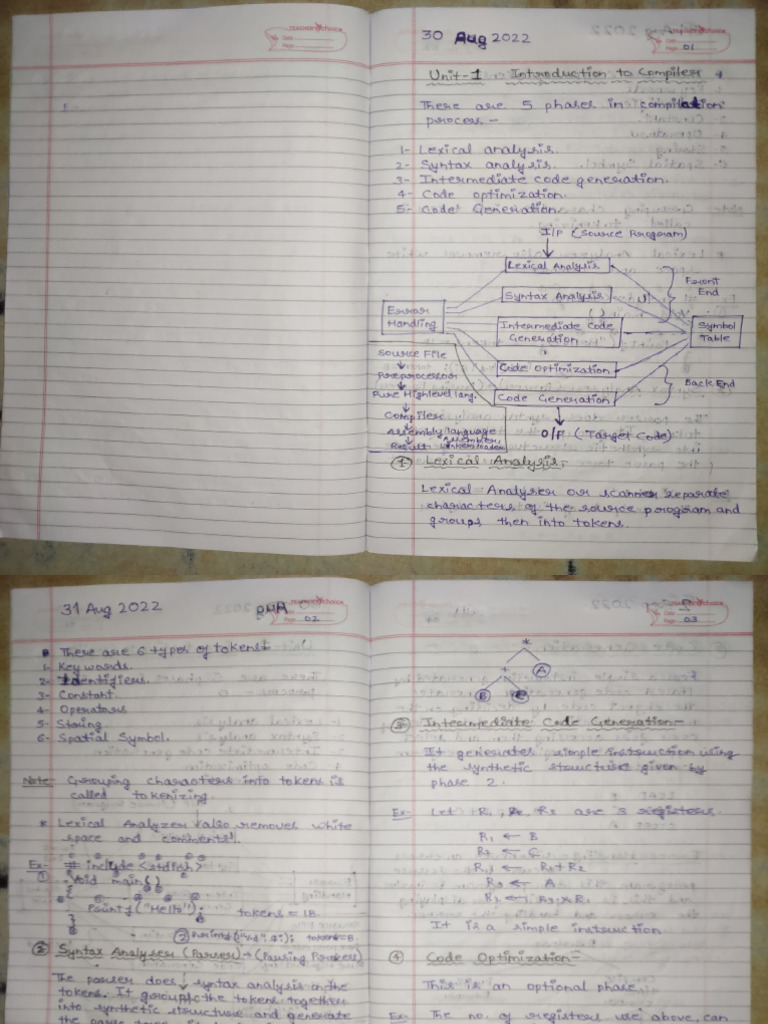 30 Aug 2022
01
Unit-1 Introduction to Compiler
There are 5 phases in compilation
process -
1- Lexical analysis.
2- Syntax analysis.
3- Intermediate code generation.
4- Code optimization.
5- Code Generation.
I/P (Source Program)
Lexical Analysis
Syntax Analysis
Intermediate Code
Generation
Code Optimization
Code Generation
O/P (Target Code)
Front
End
Back End
Symbol
Table
Error
Handling
Source File
Preprocessor
Pure Highlevel lang.
Compiler
Assembly language
Result
① Lexical Analysis:-
Lexical Analyser or scanner separate
characters of the source program and
groups then into tokens.
31 Aug 2022
02
There are 6 types of tokens
1- Key words.
2- Identifiers.
3- Constant
4- Operators
5- String
6- Spatial Symbol.
Note- Grouping characters into tokens is
called tokenizing.
* Lexical Analyzer also removes white
space and comments.
Ex-
① # include <stdio.h>
Void main()
{
Printf("Hello");
}
tokens = 18
② Printf("%d", &i); token=8
② Syntax Analyser (Parser) → (Parsing Process)
The parser does syntax analysis on the
tokens. It group the tokens together
into synthetic structure and generate
03
*
+ A
B C
③ Intermediate Code Generation-
It generates simple instruction using
the synthetic structure given by
phase 2.
Ex- Let R₁, R₂, R₃ are 3 registers.
R₁ ← B
R₂ ← C
R₁ ← R₁+R₂
R₃ ← A
It is a simple instruction
④ Code Optimization-
This is an optional phase.
Ex- The no. of registers use above, can